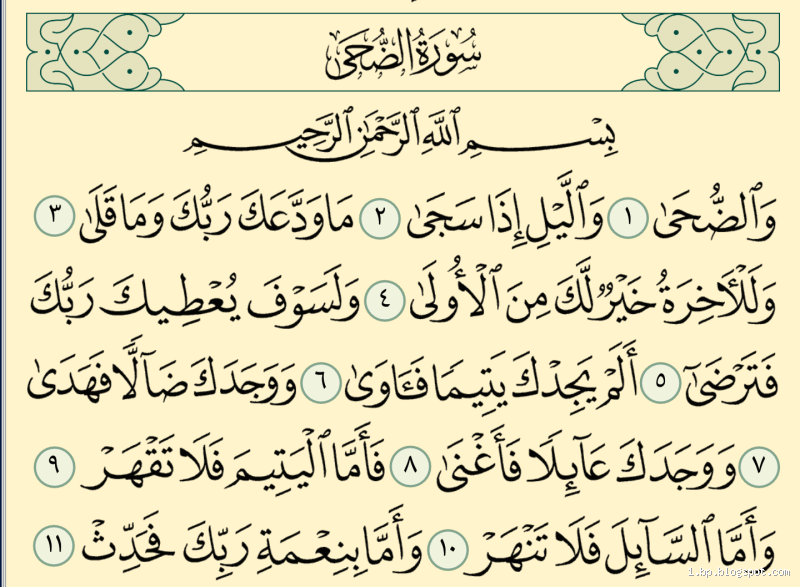 سُورَةُ الضُّحَىٰ
بِسْمِ ٱللَّهِ ٱلرَّحْمَٰنِ ٱلرَّحِيمِ
وَٱلضُّحَىٰ ١ وَٱلَّيْلِ إِذَا سَجَىٰ ٢ مَا وَدَّعَكَ رَبُّكَ وَمَا قَلَىٰ ٣
وَلَلْأٓخِرَةُ خَيْرٌ لَّكَ مِنَ ٱلْأُولَىٰ ٤ وَلَسَوْفَ يُعْطِيكَ رَبُّكَ
فَتَرْضَىٰٓ ٥ أَلَمْ يَجِدْكَ يَتِيمًا فَـَٔاوَىٰ ٦ وَوَجَدَكَ ضَآلًّا فَهَدَىٰ
٧ وَوَجَدَكَ عَآئِلًا فَأَغْنَىٰ ٨ فَأَمَّا ٱلْيَتِيمَ فَلَا تَقْهَرْ ٩
وَأَمَّا ٱلسَّآئِلَ فَلَا تَنْهَرْ ١٠ وَأَمَّا بِنِعْمَةِ رَبِّكَ فَحَدِّثْ ١١
1.bp.blogspot.com